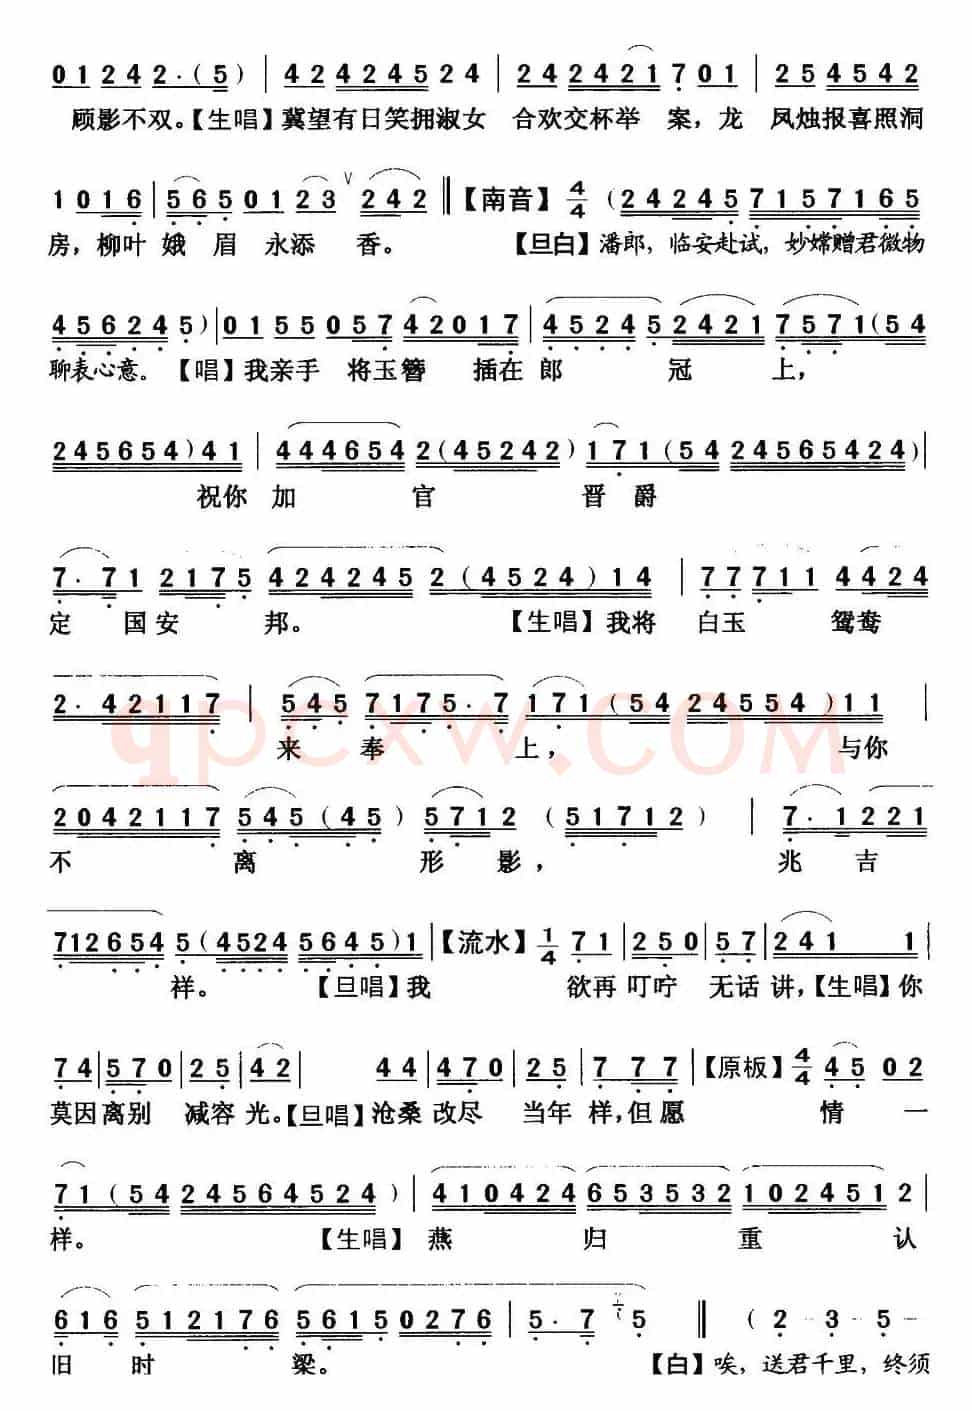 0 1 2 4 2·(5) | 4 2 4 2 4 5 2 4 | 2 4 2 4 2 1 7 0 1 | 2 5 4 5 4 2
顾影不双。【生唱】冀望有日笑拥淑女 合欢交杯举 案，龙 凤烛报喜照洞
1 0 1 6 | 5 6 5 0 1 2 3 ∨ 2 4 2 ‖【南音】4/4 (2 4 2 4 5 7 1 5 7 1 6 5
房，柳叶 娥 眉 永添 香。 【旦白】潘郎，临安赴试，妙嫦赠君微物
4 5 6 2 4 5) | 0 1 5 5 0 5 7 4 2 0 1 7 | 4 5 2 4 5 2 4 2 1 7 5 7 1 (5 4
聊表心意。【唱】我亲手 将玉簪 插在 郎 冠 上，
2 4 5 6 5 4) 4 1 | 4 4 4 6 5 4 2 (4 5 2 4 2) 1 7 1 (5 4 2 4 5 6 5 4 2 4) |
祝你 加 官 晋 爵
7· 7 1 2 1 7 5 4 2 4 2 4 5 2 (4 5 2 4) 1 4 | 7 7 7 1 1 4 4 2 4
定 国安 邦。 【生唱】我将 白玉 鸳鸯
2· 4 2 1 1 7 | 5 4 5 7 1 7 5· 7 1 7 1 (5 4 2 4 5 5 4) 1 1 |
qpcxw.COM
来 奉 上， 与你
2 0 4 2 1 1 7 5 4 5 (4 5) 5 7 1 2 (5 1 7 1 2) | 7· 1 2 2 1
不 离 形 影， 兆 吉
7 1 2 6 5 4 5 (4 5 2 4 5 6 4 5) 1 |【流水】1/4 7 1 | 2 5 0 | 5 7 | 2 4 1 1 |
祥。 【旦唱】我 欲再 叮咛 无话 讲，【生唱】你
7 4 | 5 7 0 | 2 5 | 4 2 | 4 4 | 4 7 0 | 2 5 | 7 7 7 |【原板】4/4 4 5 0 2
莫因 离别 减容 光。【旦唱】沧桑 改尽 当年 样，但愿 情 一
7 1 (5 4 2 4 5 6 4 5 2 4) | 4 1 0 4 2 4 6 5 3 5 3 2 1 0 2 4 5 1 2 |
样。 【生唱】 燕 归 重 认
6 1 6 5 1 2 1 7 6 5 6 1 5 0 2 7 6 | 5· 7 5 ‖ (2 – 3 – 5 –
旧 时 梁。 【白】唉，送君千里，终须